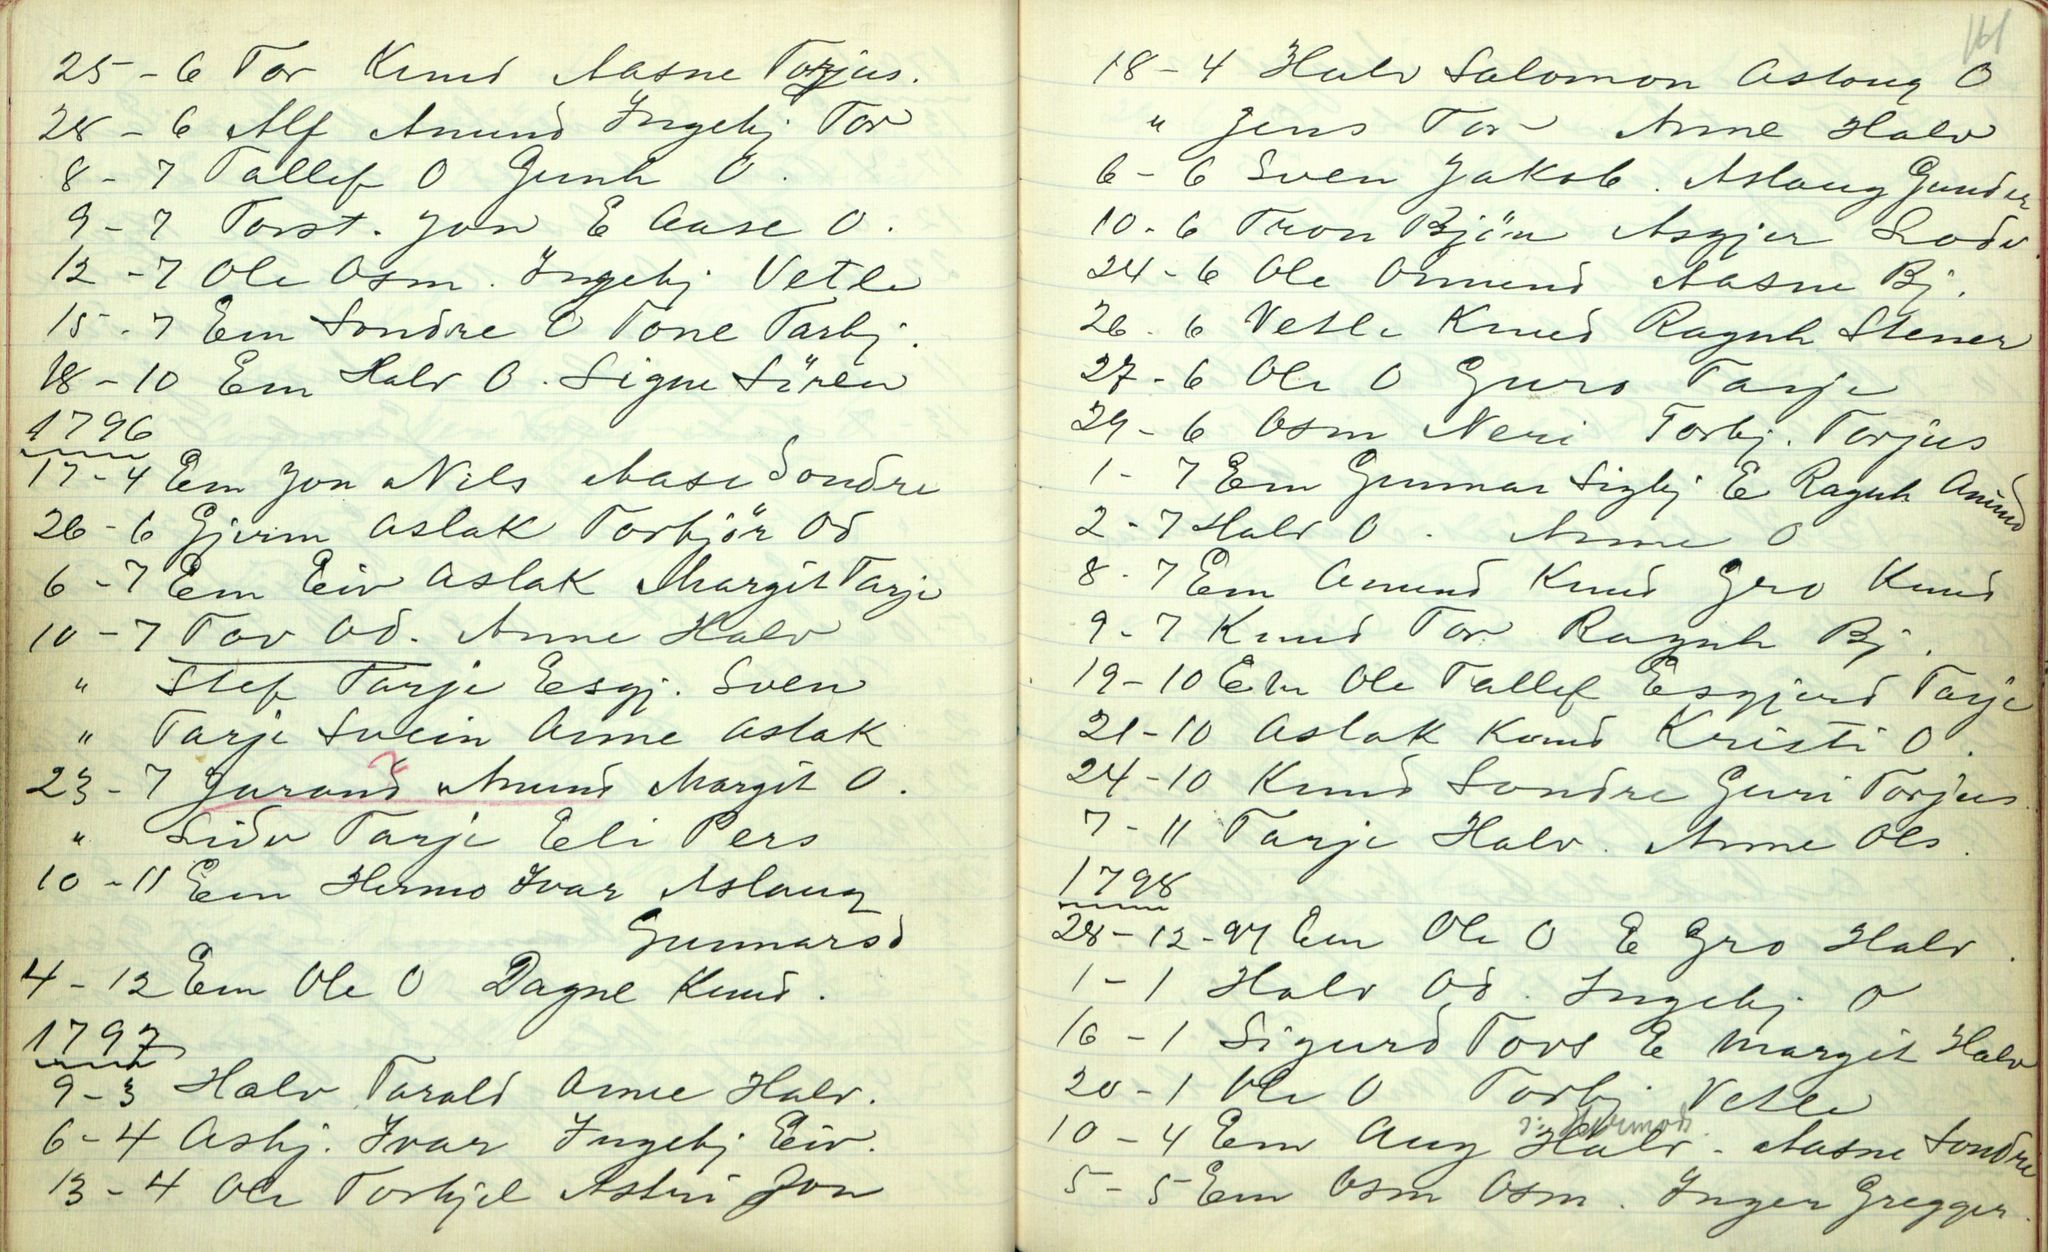 25 - 6 Tor Knud Aasne Torjus.
28 - 6 Alf Anund Ingebj Tor
8 - 7 Tallef O Gunh O.
9 - 7 Torst. Jon E Aase O.
12 - 7 Ole Osm. Ingebj Vetle
15 - 7 Em Sondre O Tone Tarbj.
18 - 10 Em Halv O. Signe Sören
1796
17 - 4 Em Jon Nils Aase Sondre
26 - 6 Gjerm Aslak Torbjör Od
6 - 7 Em Eiv Aslak Margit Tarje
10 - 7 Tov Od. Anne Halv
" Stef Tarje Esgj. Sven
" Tarje Svein Anne Aslak
23 - 7 Jorand Anund Margit O.
" Lidv Tarje Eli Pers
10 - 11 Em Hermo Ivar Aslaug
Gunnarsd
4 - 12 Em Ole O Dagne Knud.
1797
9 - 3 Halv Tarald Anne Halv.
6 - 4 Asbj. Ivar Ingebj Eiv.
13 - 4 Ole Torkjel Astri Jon
161
18 - 4 Halv Salomon Aslaug O
" Jens Tor Anne Halv
6 - 6 Sven Jakob. Aslaug Gunder
10 - 6 Tron Bjön Asgjer Lodv.
24 - 6 Ole Omund Aasne Bj.
26 - 6 Vetle Knud Ragnh Stener
27 - 6 Ole O Guro Tarje
29 - 6 Osm Neri Torbj. Torjus
1 - 7 Em Gunnar Sigbj E Ragnh Anund
2 - 7 Halv O. Anne O
8 - 7 Em Amund Knud Gro Knud
9 - 7 Knud Tor Ragnh Bj.
19 - 10 Em Ole Tallef Esgjerd Tarje
21 - 10 Aslak Knud Kristi O.
24 - 10 Knud Sondre Guri Torjus
7 - 11 Tarje Halv. Anne Ols.
1798
28 - 12 - 97 Em Ole O E Gro Halv.
1 - 1 Halv Od. Ingebj O
16 - 1 Sigurd Tovs E Margit Halv
20 - 1 Ole O Torbj Vetle
10 - 4 Em Aug Halv - Aasne Sondre
5 - 5 Em Osm Osm. Inger Gregger.